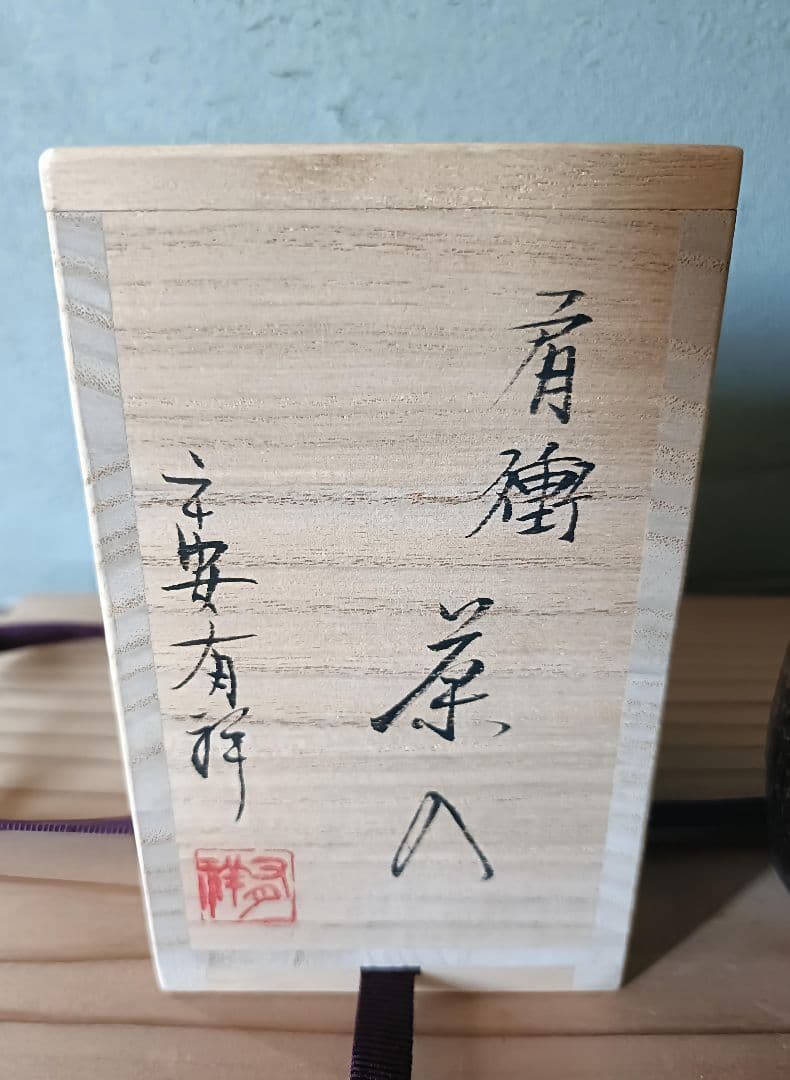 肩衝
茶入
平安有祥
有祥